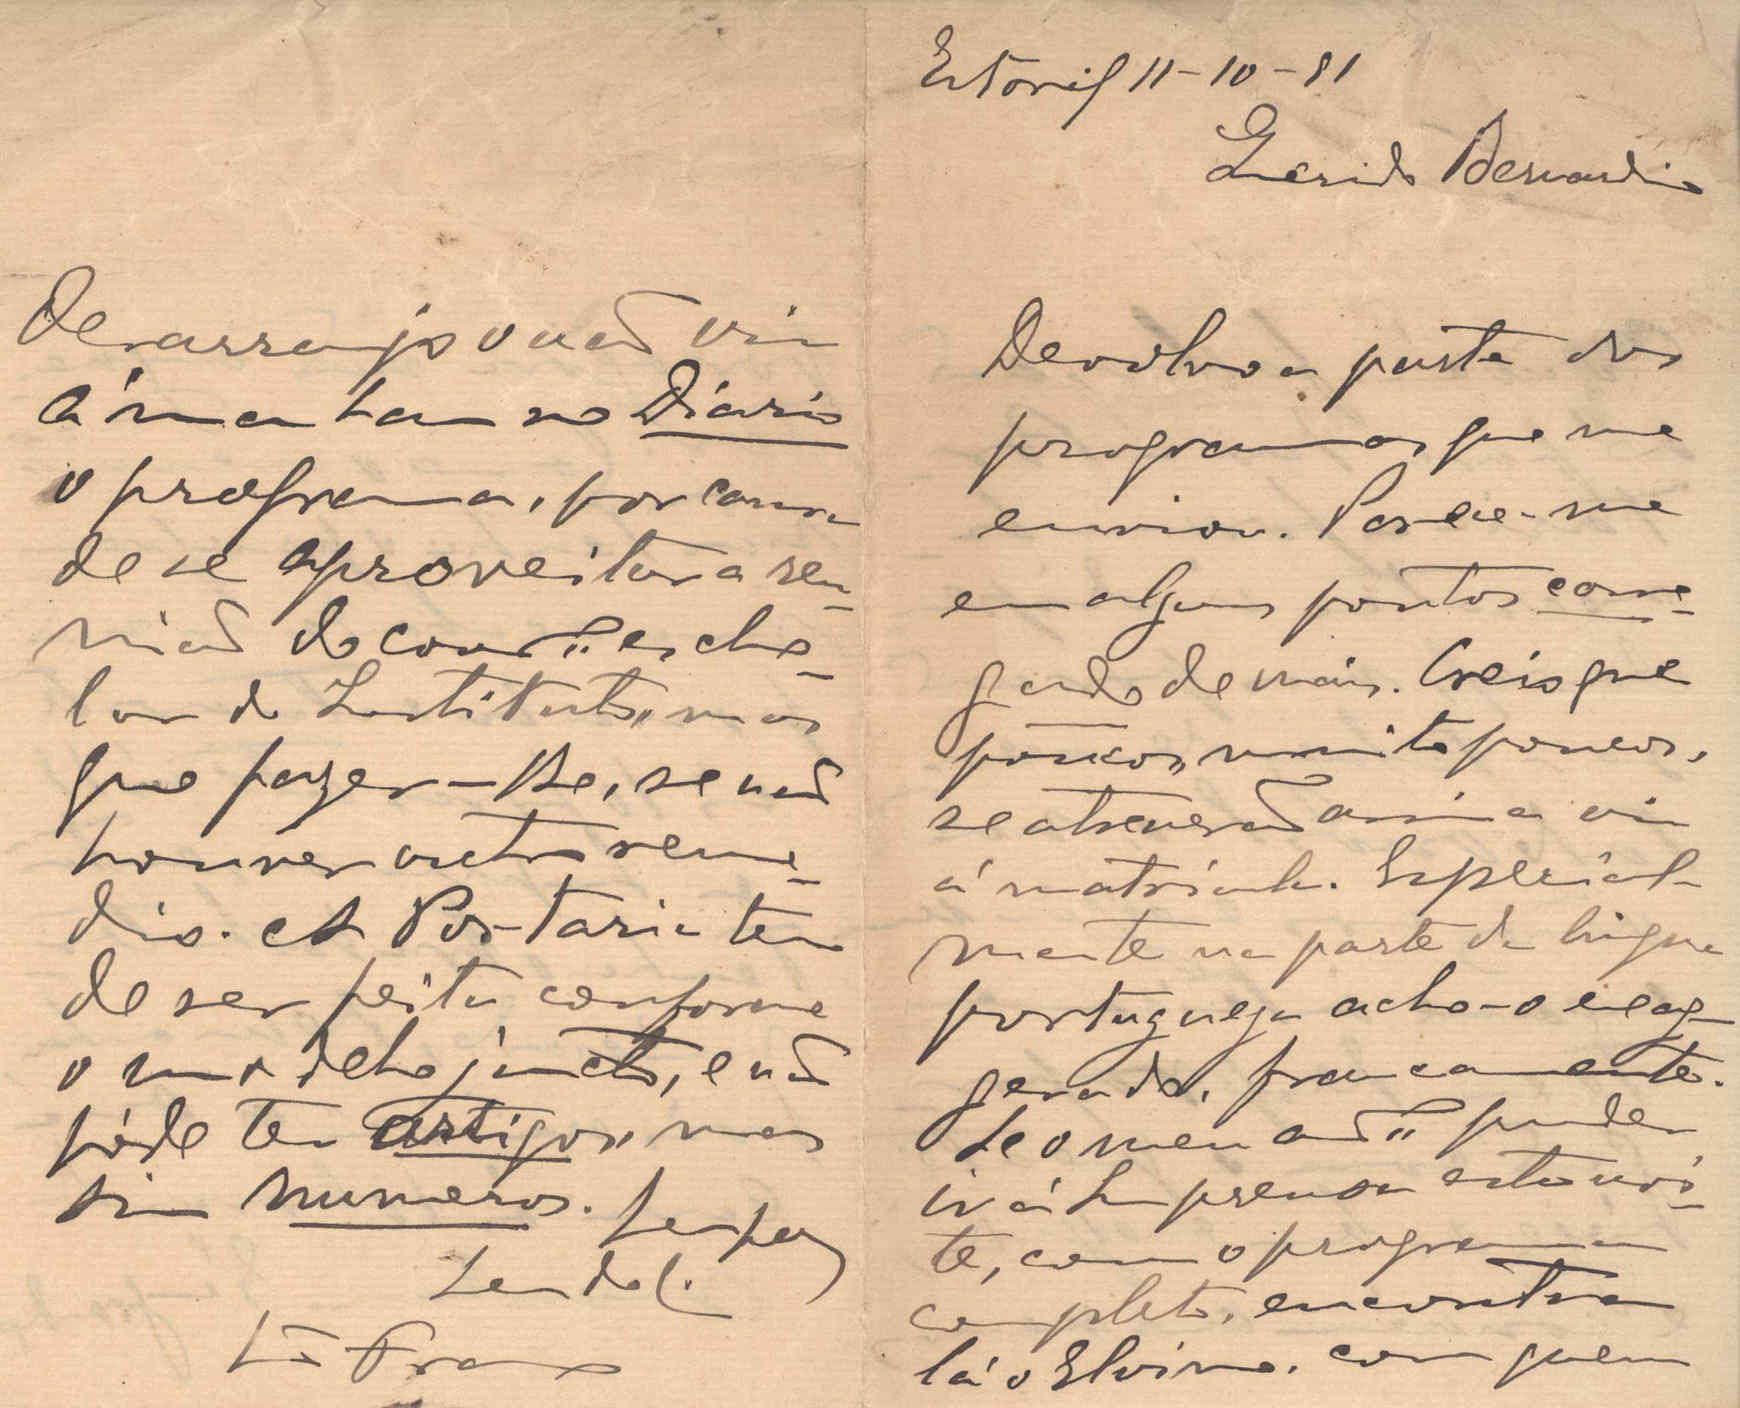 Estoril 11-10-91
Querido Bernardino
Devolvo a parte dos
programas que me
enviou. Parece-me
em alguns pontos carre-
gado de mais. Creio que
poucos, muito poucos,
se atreverão assim a vir
á matricula. Especial-
mente na parte da lingua
portugueza acho-o exag-
gerado, francamente.
Se o meu am.º puder
ir á Imprensa esta noi-
te, com o programma
completo, encontra
lá o Elvino, com quem
Desarranjo o não vir
ámanhan no Diario
o programa, por causa
de se aproveitar a reu-
nião do cons.º escho-
lar do Instituto, mas
que fazer-lhe, se não
houver outro reme-
dio. A Portaria tem
de ser feita conforme
o modelo juncto, e não
póde ter artigos, mas
sim numeros. Sempre
seu del.
J. Franco